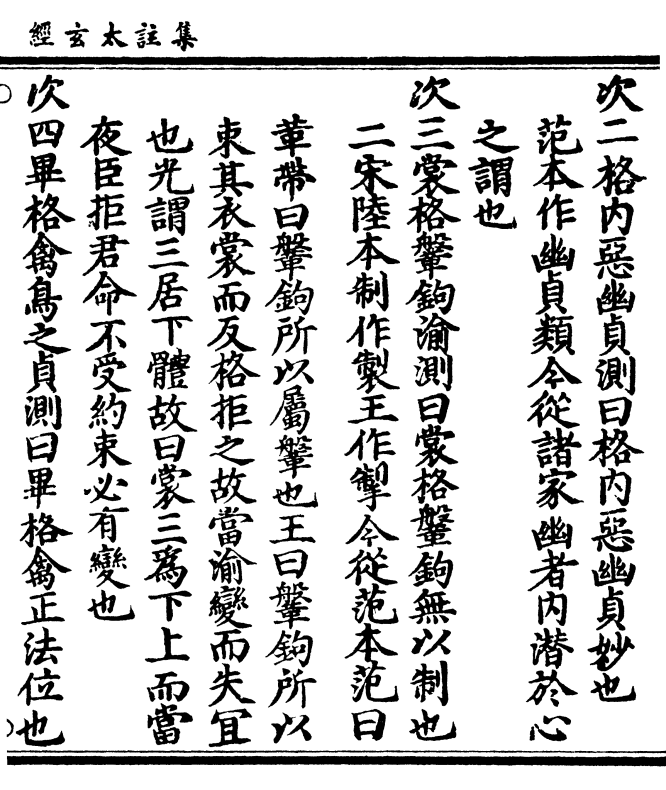 集註太玄經
次二格內惡幽貞測曰格內惡幽貞妙也
范本作幽貞類今從諸家幽者內潛於心
之謂也
次三裳格鞶鉤渝測曰裳格鞶鉤無以制也
二宋陸本制作製王作掣今從范本范曰
革帶曰鞶鉤所以屬鞶也王曰鞶鉤所以
束其衣裳而反格拒之故當渝變而失冝
也光謂三居下體故曰裳三為下上而當
夜臣拒君命不受約束必有變也
次四畢格禽鳥之貞測曰畢格禽正法位也